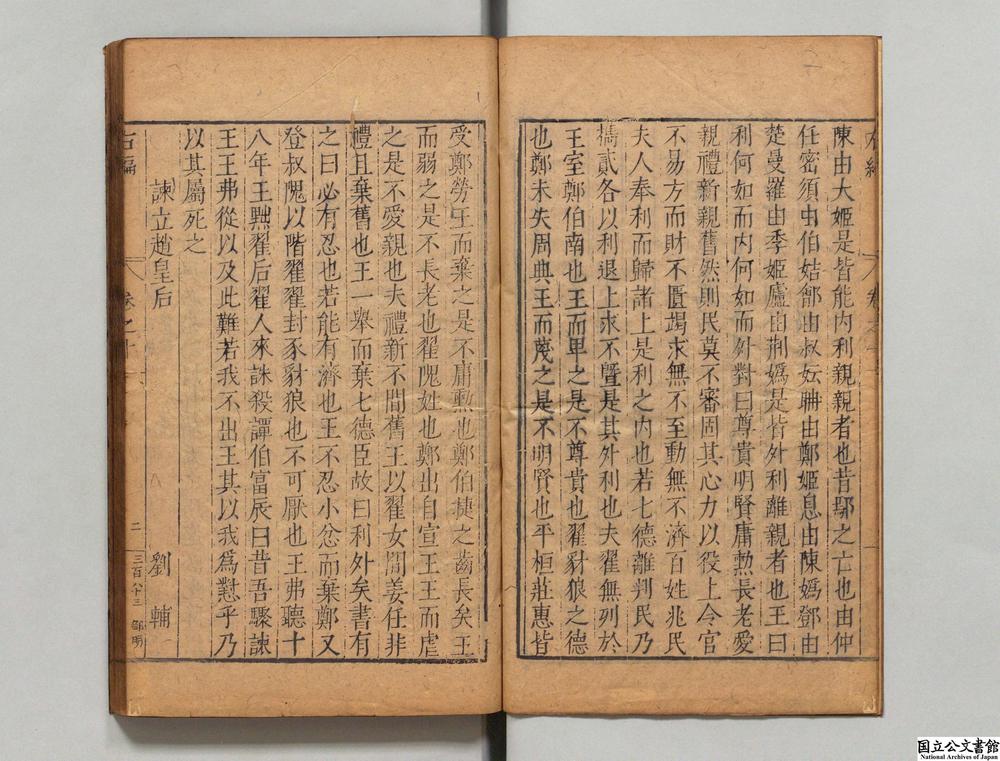 陳由大姬是皆能內利親親者也昔鄢之亡也由仲
任密須由伯姞鄶由叔妘聃由鄭姬息由陳嬀鄧由
楚曼羅由季姬廬由荆嬀是皆外利離親者也王曰
利何如而內何如而外對曰尊貴明賢庸勲長老愛
親禮新親舊然則民莫不審固其心力以役上令官
不易方而財不匱竭求無不至動無不濟百姓兆民
夫人奉利而歸諸上是利之內也若七德離判民乃
攜貳各以利退上求不曁是其外利也夫翟無列於
王室鄭伯南也王而卑之是不尊貴也翟豺狼之德
也鄭未失周典王而蔑之是不明賢也平桓莊惠皆
受鄭勞王而棄之是不庸勲也鄭伯捷之齒長矣王
而弱之是不長老也翟隗姓也鄭出自宣王王而虐
之是不愛親也夫禮新不間舊王以翟女間姜任非
禮且棄舊也王一舉而棄七德臣故曰利外矣書有
之曰必有忍也若能有濟也王不忍小忿而棄鄭又
登叔隗以階翟翟封豕豺狼也不可厭也王弗聽十
八年王黜翟后翟人來誅殺譚伯富辰曰昔吾驟諫
王王弗從以及此難若我不出王其以我爲懟乎乃
以其屬死之
諫立趙皇后 劉輔
右編 卷之十 二 三百六十三 鄒明
国立公文書館
National Archives of Japan